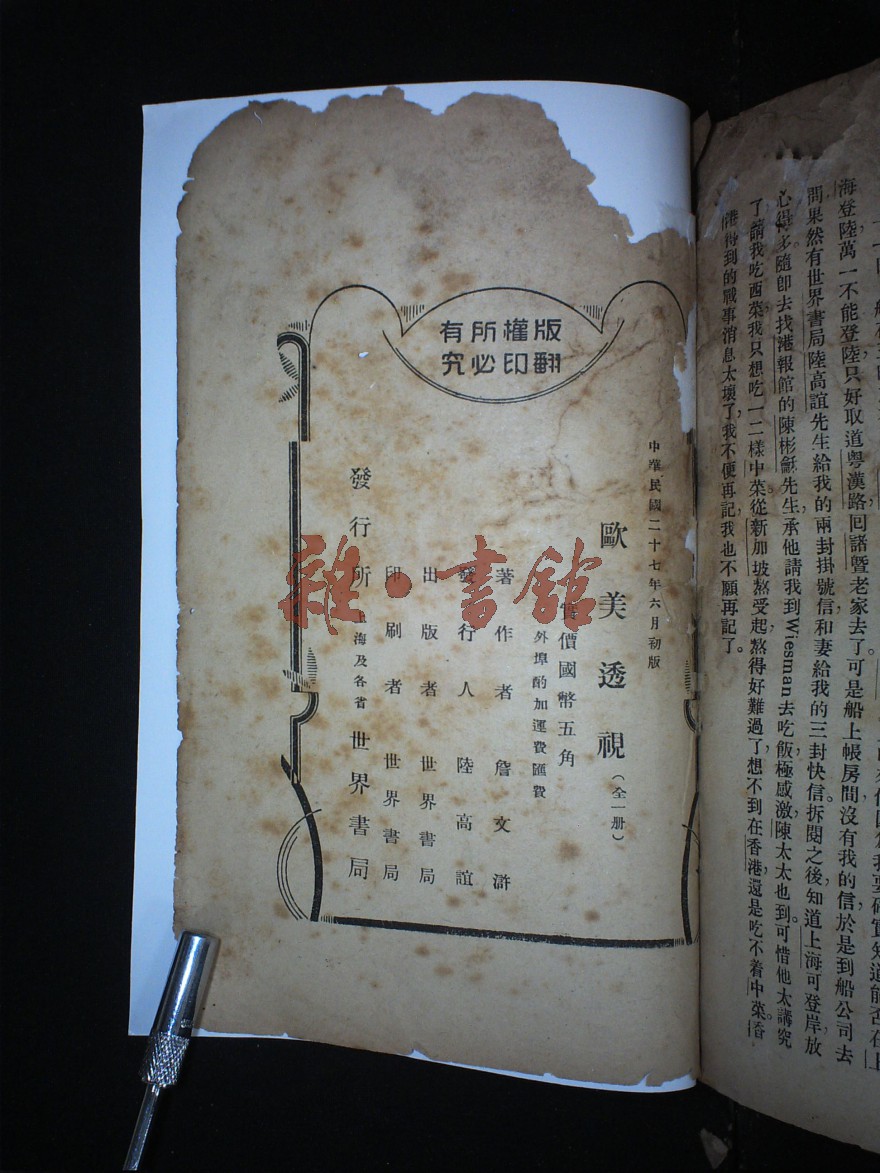 我要確實知道能否在上
海登陸，萬一不能登陸，只好取道粵漢路回諸暨老家去了。可是船上帳房間沒有我的信，於是到船公司去
問，果然有世界書局陸高誼先生給我的兩封掛號信和妻給我的三封快信，拆閱之後，知道上海可登岸，放
心得多。隨卽去找港報館的陳彬龢先生，承他請我到Wiesman去吃飯，極感激。陳太太也到。可惜他太講究
了，請我吃西菜，我只想吃一二樣中菜。從新加坡熬受起，熬得好難過了，想不到在香港還是吃不着中菜。香
港得到的戰事消息太壞了，我不便再記，我也不願再記了。
版權所有
翻印必究
中華民國二十七年六月初版
歐美透視（全一册）
實價國幣五角
外埠酌加運費匯費
著作者 詹文滸
發行人 陸高誼
出版者 世界書局
印刷者 世界書局
發行所 上海及各省 世界書局
雜·書館